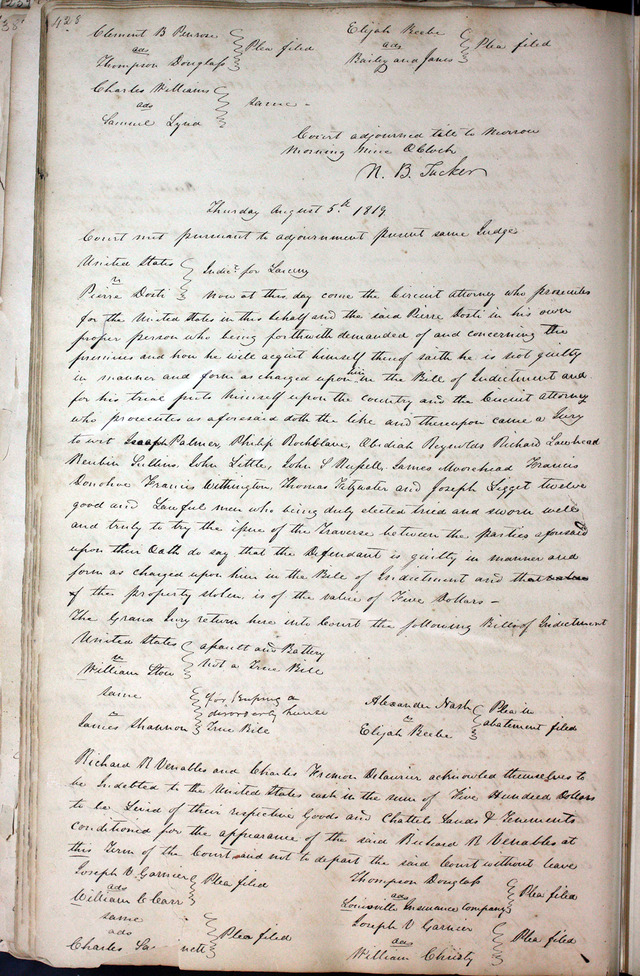 428
Clement B Penrose
ads
Thompson Douglass
Plea filed
Elijah Beebe
ads
Bailey and Jones
Plea filed
Charles Williams
ads
Samuel Lynd
same -
Court adjourned till to Morrow
Morning Nine O Clock
N. B. Tucker
Thursday August 5th 1819
Court met pursuant to adjournment present same Judge
United States
vs
Pierre Dosti
Indict for Larceny
Now at this day come the Circuit attorney who prosecutes
for the United States in this behalf and the said Pierre Dosti in his own
proper person who being forthwith demanded of and concerning the
premises and how he will acquit himself thereof saith he is not guilty
in manner and form as charged upon him in the Bill of Indictment and
for his trial puts himself upon the country and the Circuit attorney
who prosecutes as aforesaid doth the like and thereupon came a Jury
to wit Palmer, Philip Rochblave, Obediah Reynolds Richard Lawhead
Reubin Sullins, John Little, John S Russell, James Moorehead Francis
Donohoe Francis Withington, Thomas Fitzwater and Joseph Ligget twelve
good and Lawful men who being duly elected tried and sworn well
and truly to try the issue of the Traverse between the parties aforesaid
upon their Oath do say that the Defendant is guilty in manner and
form as charged upon him in the Bill of Indictment and
& that the property stolen is of the value of Five Dollars -
The Grand Jury return here into Court the following Bills of Indictment
United States
vs
William Stow
assault and Battery
Not a True Bill
same
vs
James Shannon
for keeping a
disorderly house
True Bill
Alexander Nash
vs
Elijah Beebe
Plea in
abatement filed
Richard R Venables and Charles Fremon Delaurier acknowled themselves to
be Indebted to the United States cash in the sum of Five Hundred Dollars
to be Levied of their respective Goods and Chattels Lands & Tenements
conditioned for the appearance of the said Richard R Venables at
this Term of the Court and not to depart the said Court without leave
Joseph V Garnier
ads
William C Carr
Plea filed
Thompson Douglass
ads
Louisville Insurance Company
Plea filed
same
ads
Charles
Plea filed
Joseph V Garnier
ads
William Christy
Plea filed